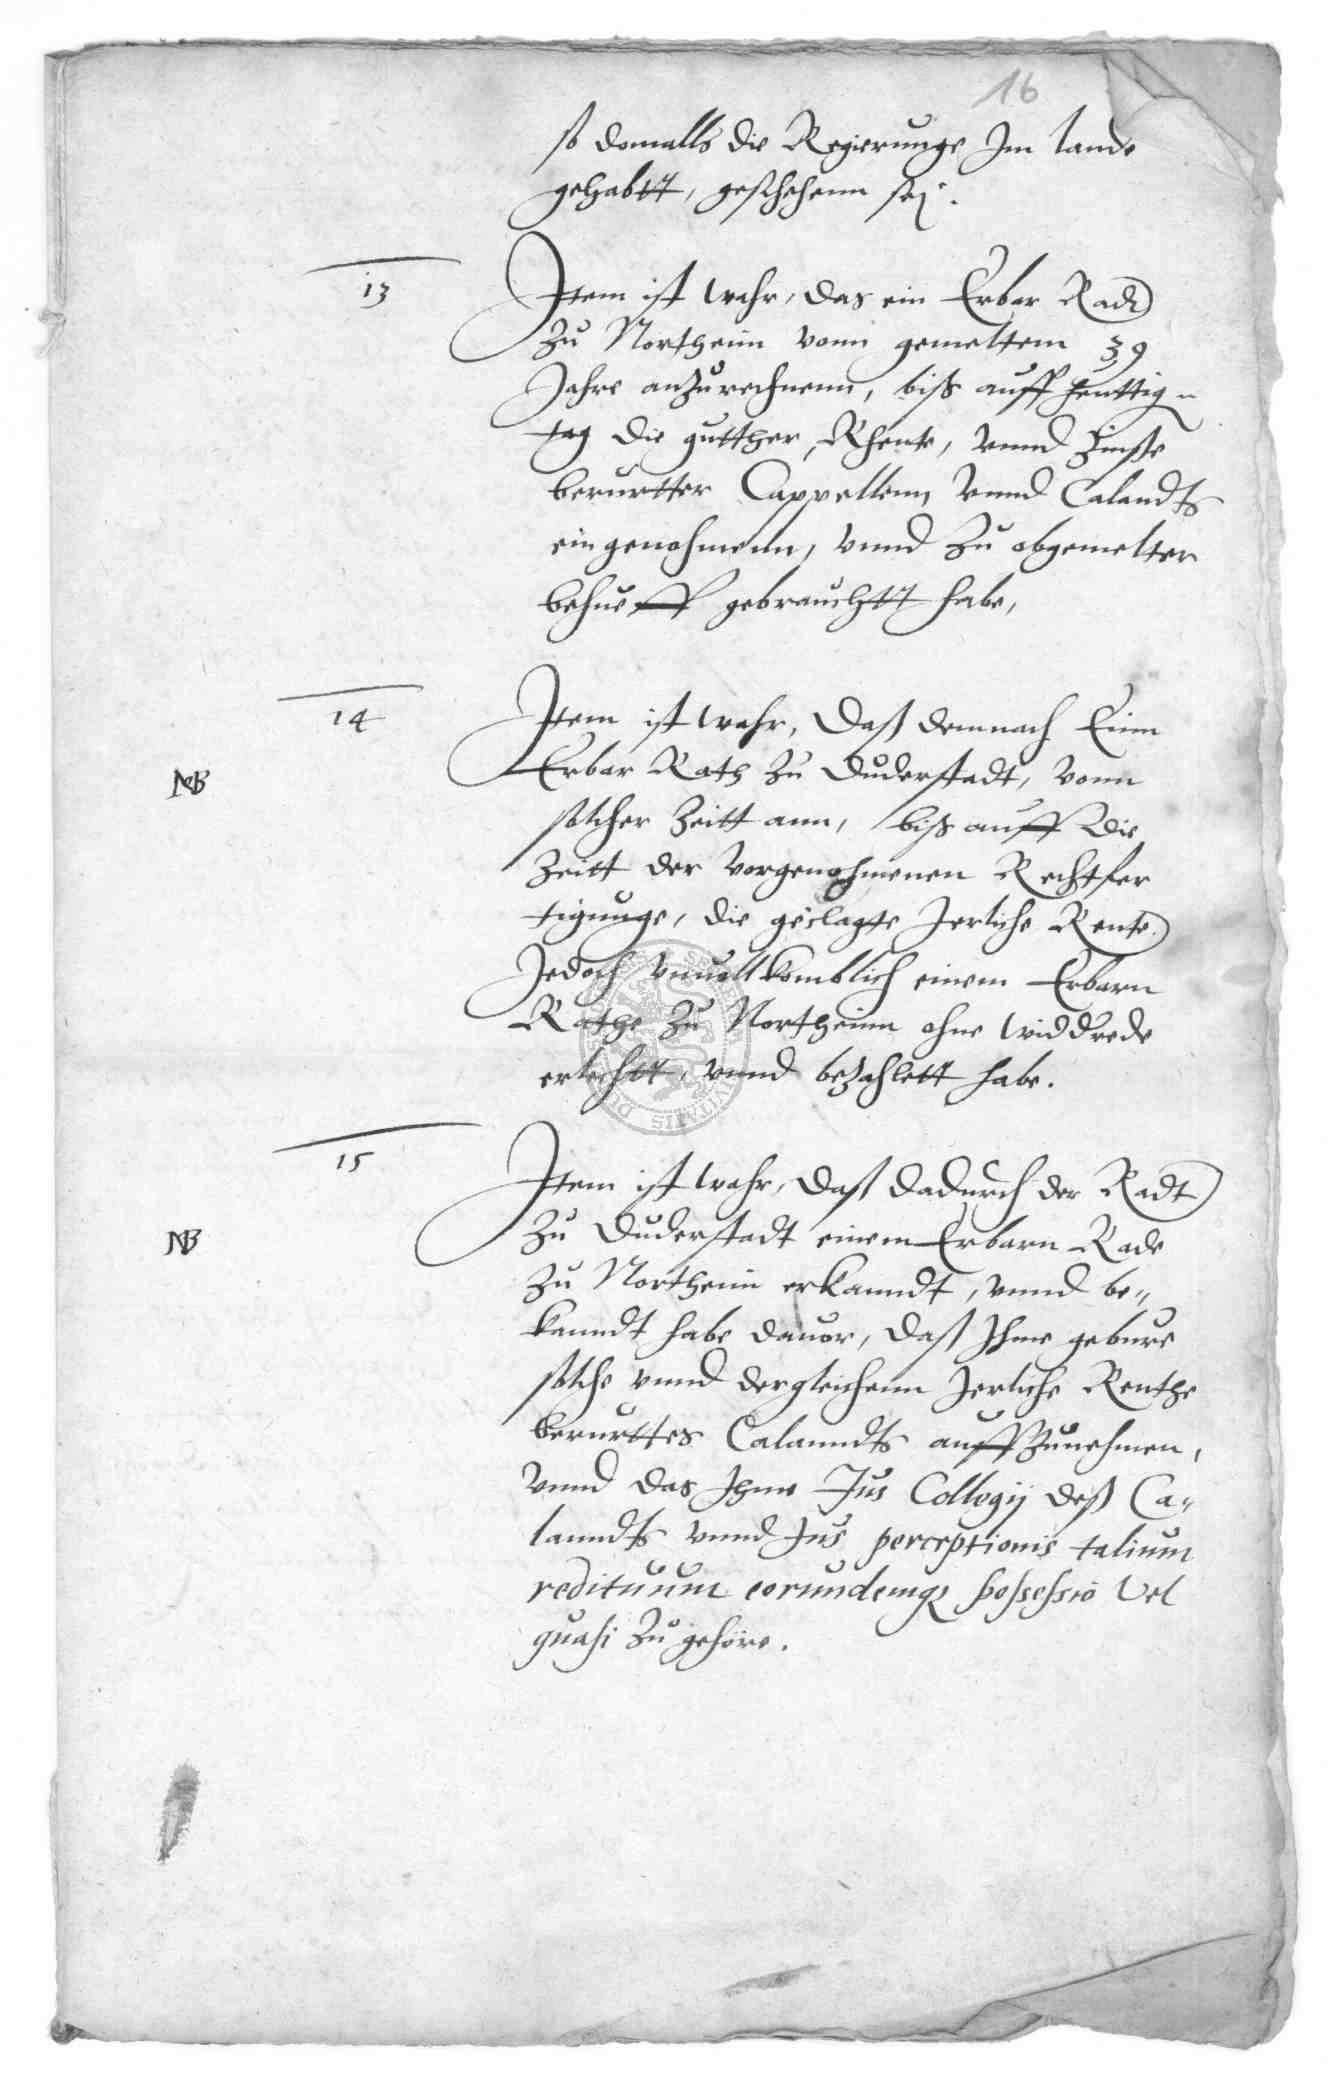 16
so domalls die Regierunge Im lande
gehabtt, geschehenn sej.
13
Item ist wahr, das ein Erbar Radt
Zu Northeim vonn gemeltem 39
Jahre anzurechnenn, biß auff heuttig
tag die gutther, Rhente, vnnd Zinße
berurtter Cappellenn vnnd Calandts
eingenohmenn, vnnd Zu obgemelter
behueff gebrauchtt habe,
14
Item ist wahr, Daß demnach Einn
NB
Erbar Rath Zu Duderstadt, vonn
solcher Zeitt ann, biß auff Die
Zeitt der Vorgenohmenen Rechtfer
tigunge, die geclagte Jerliche Rente
Jedoch vnuollkomblich einem Erbarn
Rathe Zu Northeim ohne widdrede
vnnd bezahlett habe.
15
Item ist wahr, daß dadurch der Radt
NB
Zu Duderstadt einem Erbarn Rade
Zu Northeim erkanndt, vnnd be„
kanndt habe dauor, daß Ihme gebure
solche vnnd dergleichenn Jerliche Renthe
berurttes Calanndts auffZunehmen,
Vnnd das Ihme Jus Collegij deß Ca„
lanndts vnnd Jus perceptionis talium
redituum eorundemq possessio Vel
quasi Zugehöre.